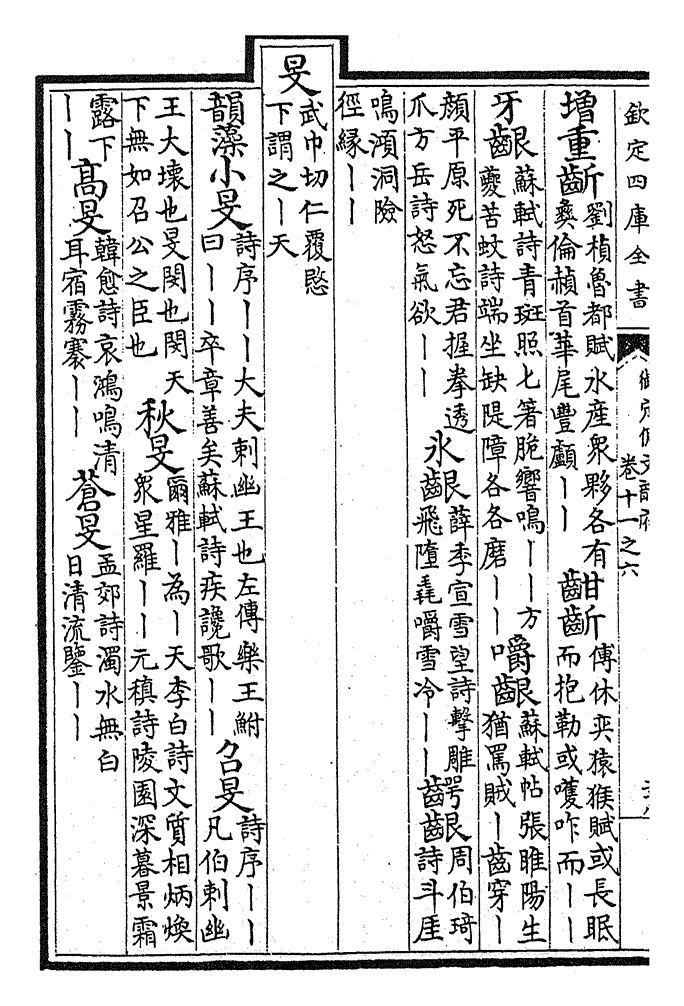 欽定四庫全書
御定佩文韻府
卷十一之六
增重齗
劉楨魯都賦水産衆夥各有
彝倫赬首華尾豐顱丨丨
齗
傅休奕猿猴賦或長眠
而抱勒或嚄咋而丨丨
牙齦
蘇軾詩青斑照匕箸脆響鳴丨丨方
夔苦蚊詩端坐缺隄障各各磨丨丨
嚼齦
蘇軾帖張睢陽生
猶罵賊丨齒穿丨
顏平原死不忘君握拳透
爪方岳詩怒氣欲丨丨
氷齦
薛季宣雪望詩擊雕
飛墮毳嚼雪冷丨丨
齶齦
周伯琦
詩斗厓
鳴澒洞險
徑緣丨丨
旻
武巾切仁覆愍
下謂之丨天
韻藻小旻
詩序丨丨大夫刺幽王也左傳樂王鮒
曰丨丨卒章善矣蘇軾詩疾讒歌丨丨
召旻
詩序丨丨
凡伯刺幽
王大壞也旻閔也閔天
下無如召公之臣也
秋旻
爾雅丨為丨天李白詩文質相炳煥
衆星羅丨丨元稹詩陵園深暮景霜
露下
丨丨
高旻
韓愈詩哀鴻鳴清
耳宿霧褰丨丨
蒼旻
孟郊詩濁水無白
日清流鑒丨丨